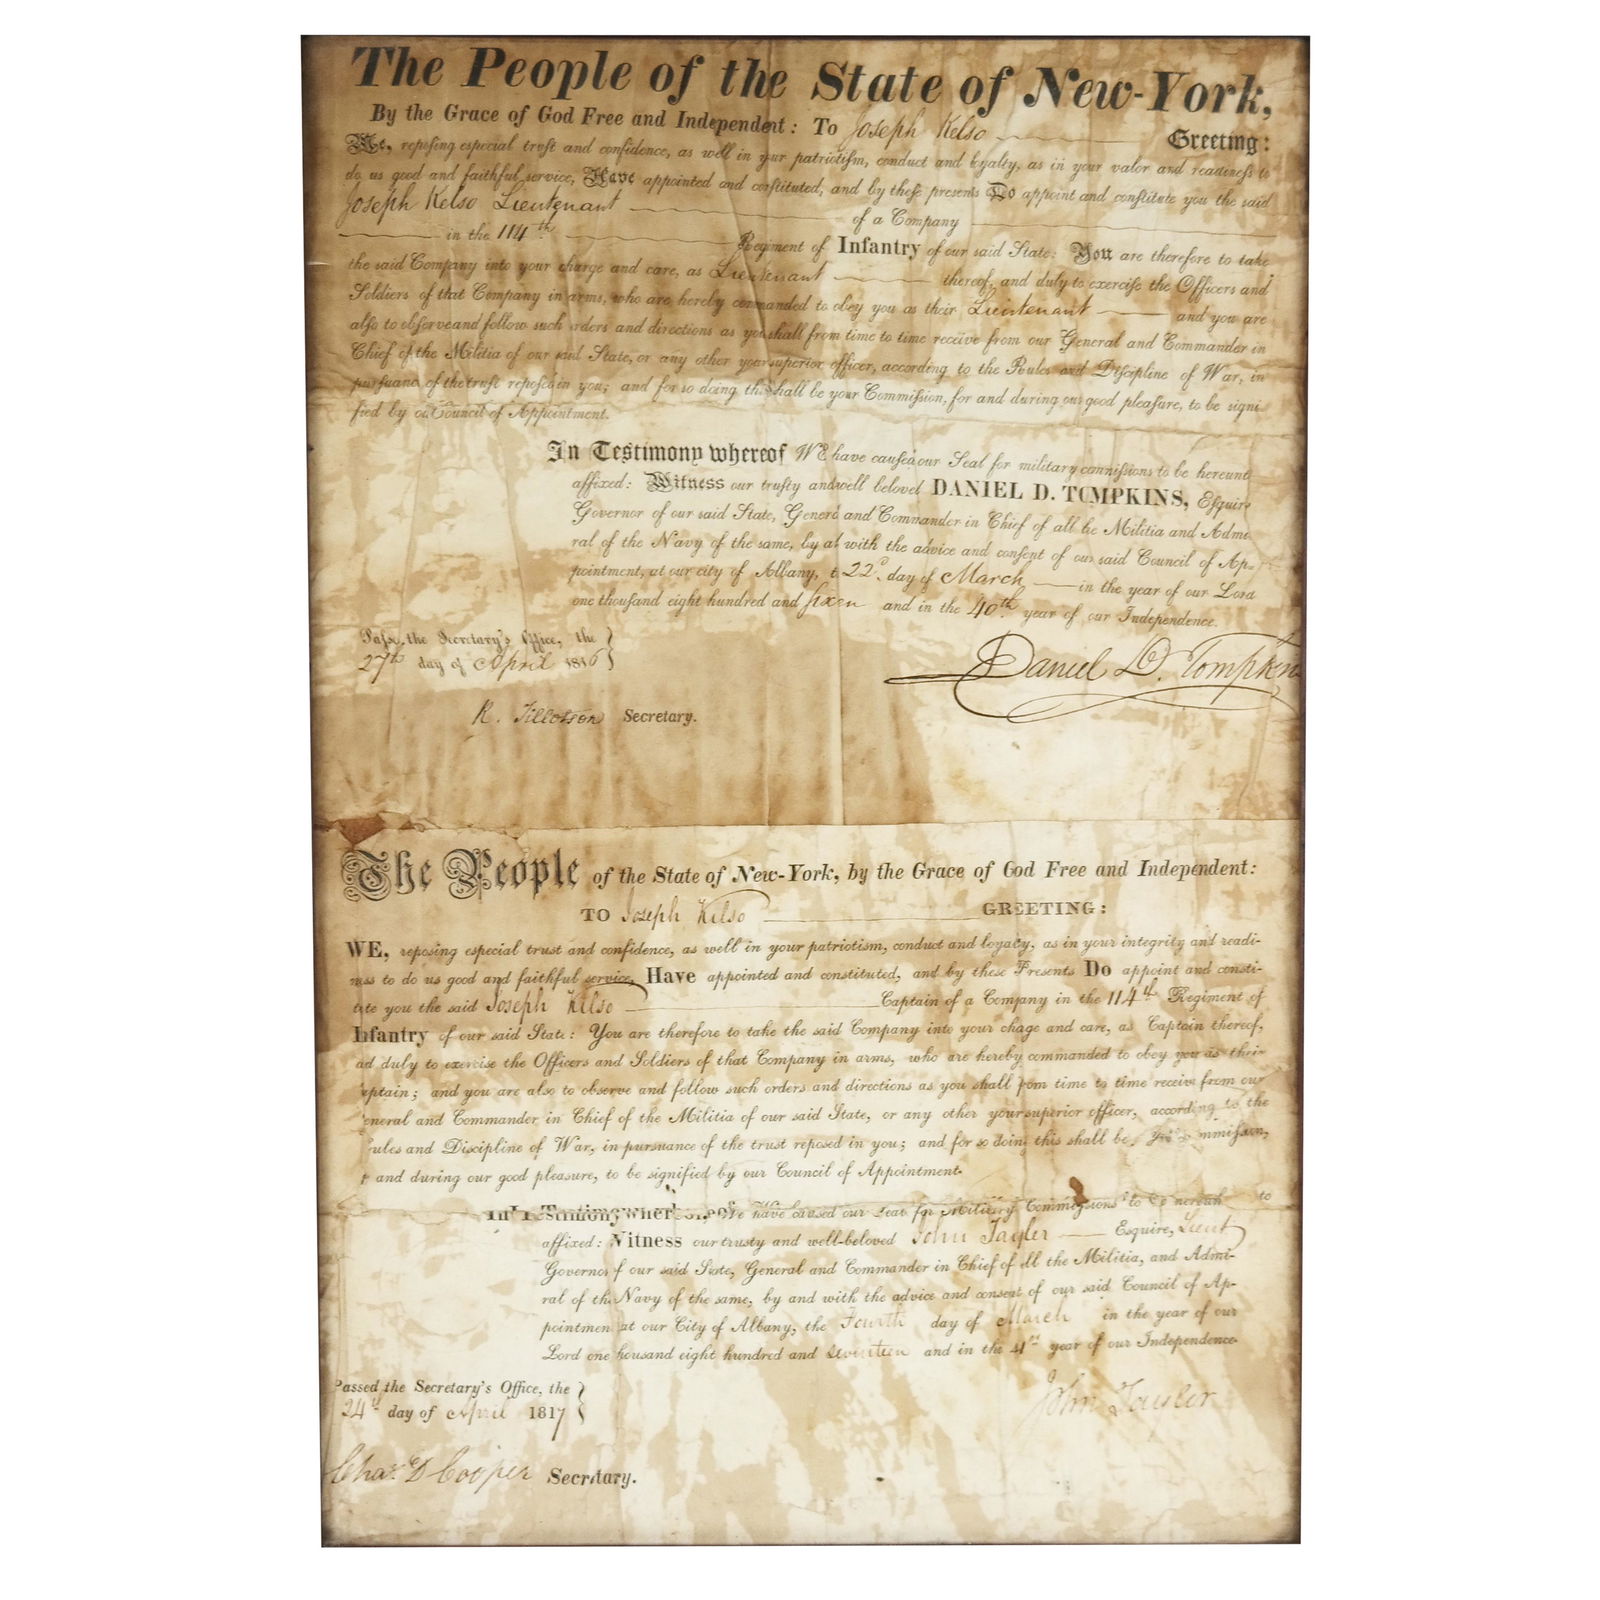 The People of the State of New-York,
By the Grace of God Free and Independent: To Joseph Kelso Greeting:
We, reposing especial trust and confidence, as well in your patriotism, conduct and loyalty, as in your valor and readiness to
do us good and faithful service, Have appointed and constituted, and by these presents Do appoint and constitute you the said
Joseph Kelso Lieutenant of a Company
in the 114th Regiment of Infantry of our said State: You are therefore to take
the said Company into your charge and care, as Lieutenant thereof, and duly to exercise the Officers and
Soldiers of that Company in arms, who are hereby commanded to obey you as their Lieutenant and you are
also to observe and follow such orders and directions as you shall from time to time receive from our General and Commander in
Chief of the Militia of our said State, or any other your superior officer, according to the Rules and Discipline of War, in
pursuanc of the trust reposed in you; and for so doing th shall be your Commission, for and during our good pleasure, to be signi
fied by ou Council of Appointment.
In Testimony whereof We have caused our Seal for military commissions to be hereunt
affixed: Witness our trusty and well beloved DANIEL D. TOMPKINS, Esquire
Governor of our said State, General and Commander in Chief of all he Militia and Admi
ral of the Navy of the same, by a with the advice and consent of our said Council of Ap-
pointment, at our city of Albany, t 22d. day of March in the year of our Lord
one thousand eight hundred and sixen and in the 40th year of our Independence.
Pass. the Secretary's Office, the
27th day of April 1816
Daniel D. Tompkin
R. Tillotson Secretary.
The People of the State of New-York, by the Grace of God Free and Independent:
TO Joseph Kelso GREETING:
WE, reposing especial trust and confidence, as well in your patriotism, conduct and loyalty, as in your integrity and readi-
ness to do us good and faithful service, Have appointed and constituted, and by these Presents Do appoint and consti-
tute you the said Joseph Kelso Captain of a Company in the 114th Regiment of
Infantry of our said State: You are therefore to take the said Company into your chage and care, as Captain thereof,
ad duly to exercise the Officers and Soldiers of that Company in arms, who are hereby commanded to obey you as their
aptain; and you are also to observe and follow such orders and directions as you shall from time to time receive from our
eneral and Commander in Chief of the Militia of our said State, or any other your superior officer, according to the
ules and Discipline of War, in pursuance of the trust reposed in you; and for so doing this shall be mmission,
and during our good pleasure, to be signified by our Council of Appointment.
In Testimony we have caused our Seal for Military Commissions to be hereun to
affixed: Witness our trusty and well-beloved John Tayler Esquire, Lieut
Governor f our said State, General and Commander in Chief of all the Militia, and Admi-
ral of the Navy of the same; by and with the advice and consent of our said Council of Ap-
pointmen at our City of Albany, the Fourth day of March in the year of our
Lord one housand eight hundred and seventeen and in the 41st year of our Independence.
Passed the Secretary's Office, the
24th day of April 1817
John Tayler
Chas. D Cooper Secretary.